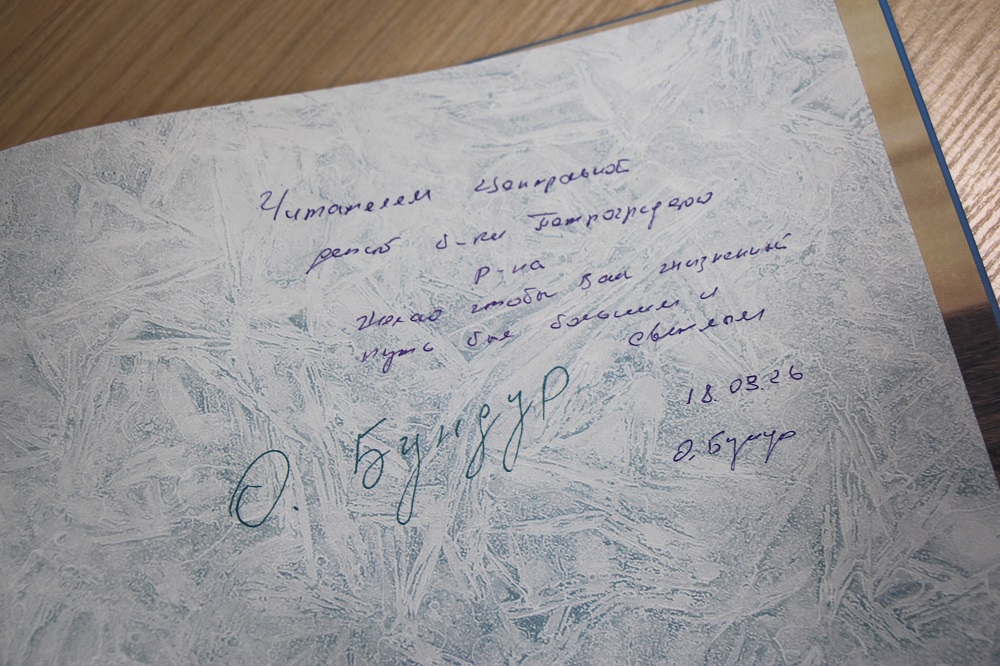 Читателям Центральной
детской б-ки Петроградского
р-на
Желаю чтобы Ваш жизненный
путь был большим и
светлым
18.03.26
О. Бундур
О. Бундур